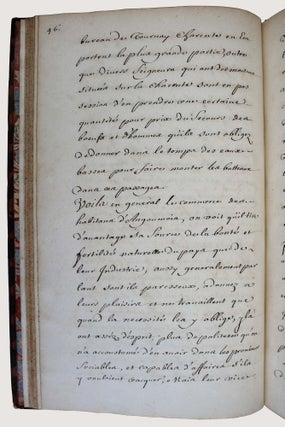 46.
bureau de Tournay Charente en Em
portent la plus grande partie, outre
que Divers Seigneurs qui ont des maisons
situées sur la Charente sont en pos
session d'en prendre une certaine
quantité pour prix du Secours des
bœufs et d'hommes qu'ils sont obligez
de donner dans le temps des eaux
basses pour faire monter les batteaux
dans ces passages.
Voila en general le commerce des
habitans d'Angoumois, on voit qu'il tire
d'avantage sa Source de la bonté et
fertilité naturelle du pays que de
leur Industrie, aussy generalement par
lant sont ils paresseux, adonnez a
leurs plaisirs et ne travaillent que
quand la necessité les y oblige, Ils
ont assez d'esprit, plus de politesse qu'on
n'a accoustumé d'en avoir dans les provinces
Sociables, et capables d'affaires s'ils
y vouloient vacquer, Mais leur vice